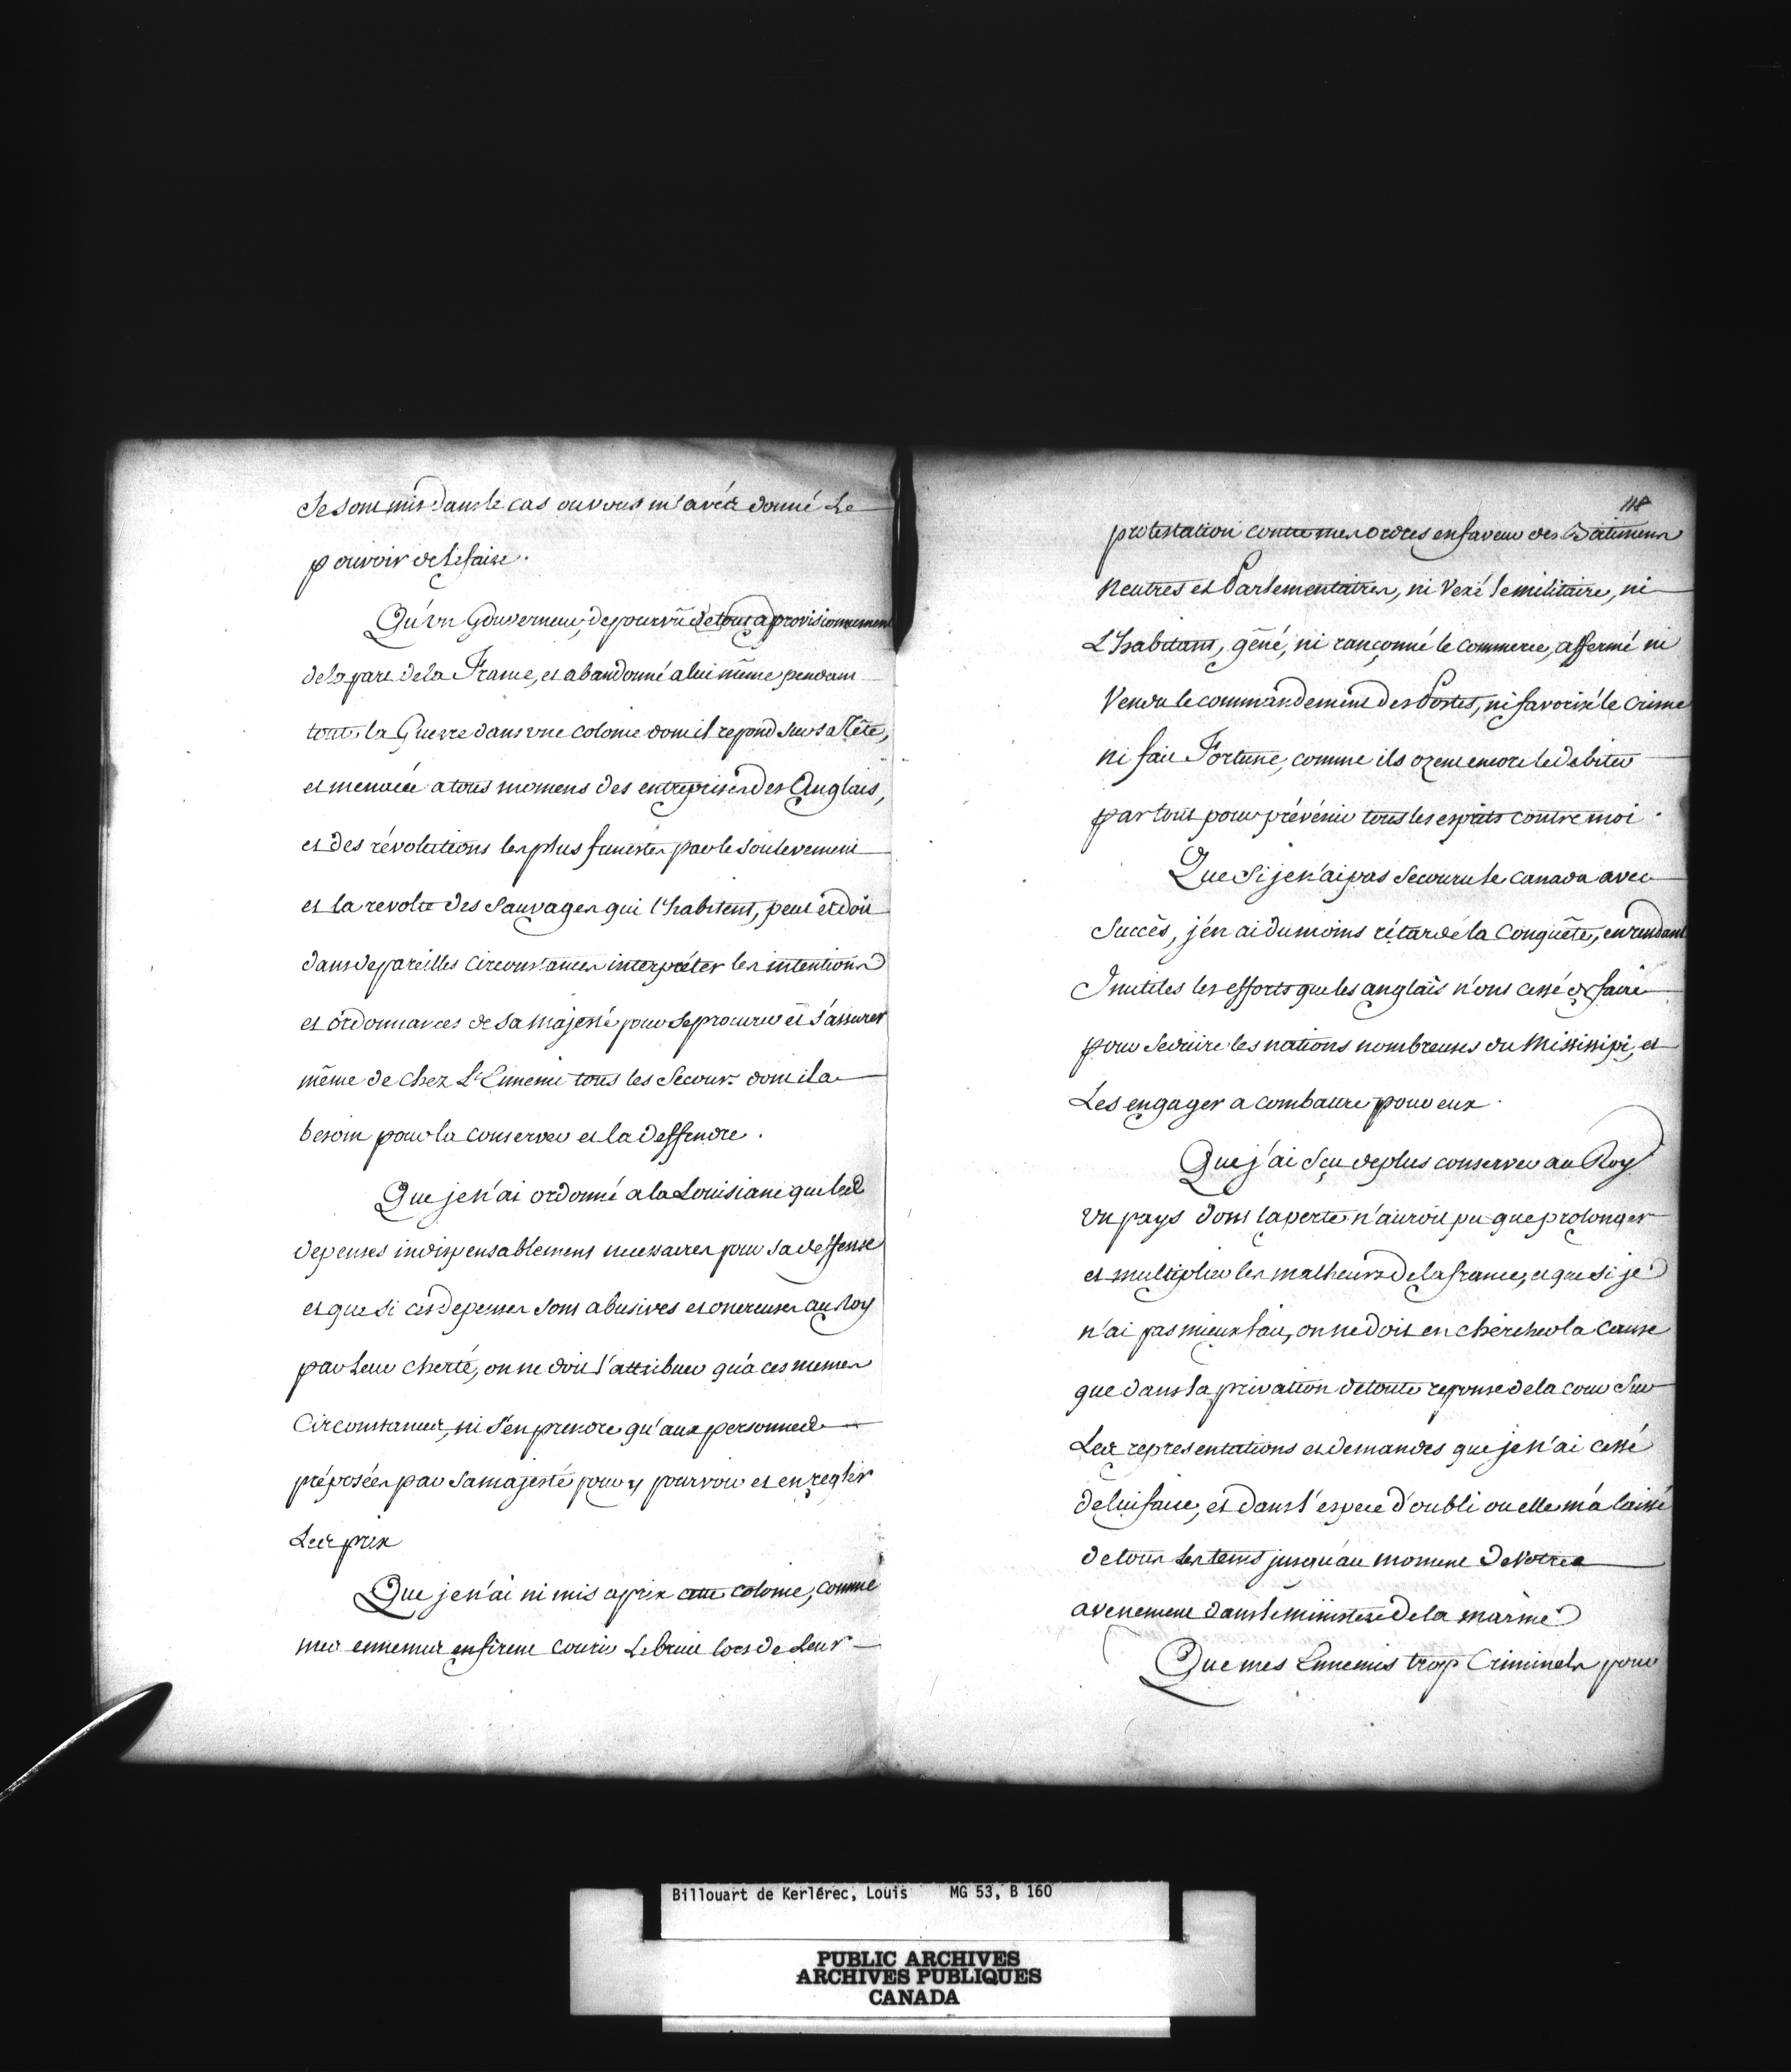 Se sont mis dans le cas ou vous m'avéz donné Le
pouvoir de le faire.
Qu'un Gouverneur, depourvû de tout aprovisionnement
de la part de la France, et abandonné a lui même pendant
toute la Guerre dans une colonie dont il repond sur sa Tête,
et menacée a tous momens des entreprises des Anglais,
et des révolutions les plus funestes par le soulevement
et la revolte des Sauvages qui l'habitent, peut et doit
dans de pareilles circonstances interpréter les intentions
et ordonnances de sa majesté pour se procurer et s'assurer
même de chez L'Ennemi tous les Secours dont il a
besoin pour la conserver et la deffendre.
Que je n'ai ordonné a la Louisiane que les
depenses indispensablement necessaires pour sa deffense
et que si ces depenses sont abusives et onereuses au Roy
par leur cherté, on ne doit l'attribuer qu'à ces memes
Circonstances, ni s'en prendre qu'aux personnes
préposées par sa majesté pour y pourvoir et en regler
Les prix
Que je n'ai ni mis a prix cette colonie, comme
mes ennemis en firent courir Le bruit lors de Leur
118
protestation contre mes ordres en faveur des Bâtimens
Neutres et Parlementaires, ni Vexé le militaire, ni
L'habitant, gêné, ni rançonné le commerce, affermé ni
Vendu le commandement des Postes, ni favorisé le Crime
ni fait Fortune, comme ils ozent encore le debiter
partout pour prévénir tous les esprits contre moi.
Que Si je n'ai pas Secouru le Canada avec
Succès, j'en ai du moins rétardé la Conquête, en rendant
Inutiles les efforts que les anglais n'ont cessé de faire
pour seduire les nations nombreuses du Missisipi, et
Les engager a combattre pour eux.
Que j'ai Sçu de plus conserver au Roy
Un pays dont la perte n'auroit pu que prolonger
et multiplier les malheurs de la france, et que si je
n'ai pas mieux fait, on ne doit en chercher la Cause
que dans la privation de toute reponse de la cour Sur
Les representations et demandes que je n'ai cessé
de lui faire, et dans l'espece d'oubli ou elle m'a laissé
de tous les tems jusqu'au moment de Votre
avenement dans le ministere de la marine
Que mes Ennemis trop Criminels pour
Billouart de Kerlérec, Louis MG 53, B 160
PUBLIC ARCHIVES
ARCHIVES PUBLIQUES
CANADA